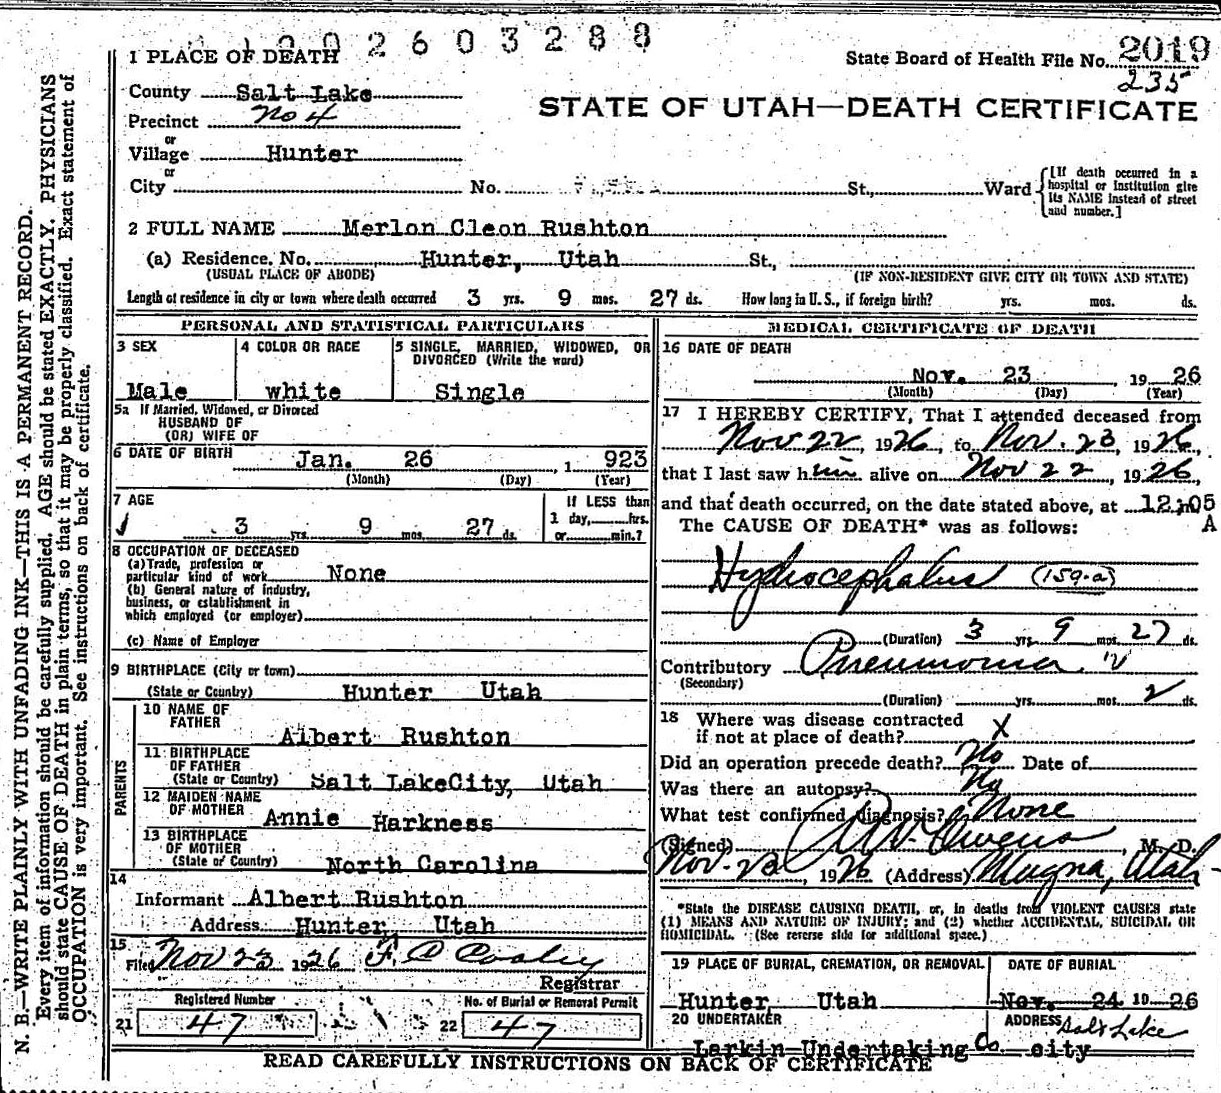 1 2 0 2 6 0 3 2 8 8
1 PLACE OF DEATH
State Board of Health File No. 2019
235
County Salt Lake
STATE OF UTAH—DEATH CERTIFICATE
Precinct No 4
or
Village Hunter
or
City No. St., Ward
[If death occurred in a hospital or institution give its NAME instead of street and number.]
2 FULL NAME Merlon Cleon Rushton
(a) Residence. No. Hunter, Utah St.,
(USUAL PLACE OF ABODE) (IF NON-RESIDENT GIVE CITY OR TOWN AND STATE)
Length of residence in city or town where death occurred 3 yrs. 9 mos. 27 ds. How long in U. S., if foreign birth? yrs. mos. ds.
PERSONAL AND STATISTICAL PARTICULARS
3 SEX
Male
4 COLOR OR RACE
white
5 SINGLE, MARRIED, WIDOWED, OR
DIVORCED (Write the word)
Single
5a If Married, Widowed, or Divorced
HUSBAND OF
(OR) WIFE OF
6 DATE OF BIRTH Jan. 26, 1 923
(Month) (Day) (Year)
7 AGE
3 yrs. 9 mos. 27 ds.
If LESS than
1 day, hrs.
or min.?
8 OCCUPATION OF DECEASED
(a) Trade, profession or
particular kind of work None
(b) General nature of industry,
business, or establishment in
which employed (or employer)
(c) Name of Employer
9 BIRTHPLACE (City or town)
(State or Country) Hunter Utah
PARENTS
10 NAME OF
FATHER
Albert Rushton
11 BIRTHPLACE
OF FATHER
(State or Country) Salt LakeCity, Utah
12 MAIDEN NAME
OF MOTHER
Annie Harkness
13 BIRTHPLACE
OF MOTHER
(State or Country) North Carolina
14
Informant Albert Rushton
Address Hunter Utah
15
Filed Nov 23 1926 F. C Cooley
Registrar
Registered Number
21 47
No. of Burial or Removal Permit
22 47
MEDICAL CERTIFICATE OF DEATH
16 DATE OF DEATH
Nov. 23, 19 26
(Month) (Day) (Year)
17 I HEREBY CERTIFY, That I attended deceased from
Nov 22, 1926, to Nov. 23, 1926,
that I last saw him alive on Nov 22, 1926,
and that death occurred, on the date stated above, at 12:05 m
A
The CAUSE OF DEATH* was as follows:
Hydrocephalus (159-a)
(Duration) 3 yrs. 9 mos. 27 ds.
Contributory Pneumonia
(Secondary)
(Duration) yrs. mos. 2 ds.
18 Where was disease contracted
if not at place of death? X
Did an operation precede death? No Date of
Was there an autopsy? No
What test confirmed diagnosis? None
(Signed) Owens, M. D.
Nov. 23, 1926 (Address) Magna, Utah
*State the DISEASE CAUSING DEATH, or, in deaths from VIOLENT CAUSES state
(1) MEANS AND NATURE OF INJURY; and (2) whether ACCIDENTAL, SUICIDAL OR
HOMICIDAL. (See reverse side for additional space.)
19 PLACE OF BURIAL, CREMATION, OR REMOVAL
Hunter Utah
DATE OF BURIAL
Nov. 24 19 26
20 UNDERTAKER
Larkin Undertaking Co.
ADDRESS Salt Lake
city
READ CAREFULLY INSTRUCTIONS ON BACK OF CERTIFICATE
N. B.—WRITE PLAINLY WITH UNFADING INK—THIS IS A PERMANENT RECORD.
Every item of information should be carefully supplied. AGE should be stated EXACTLY. PHYSICIANS
should state CAUSE OF DEATH in plain terms, so that it may be properly classified. Exact statement of
OCCUPATION is very important. See instructions on back of certificate.